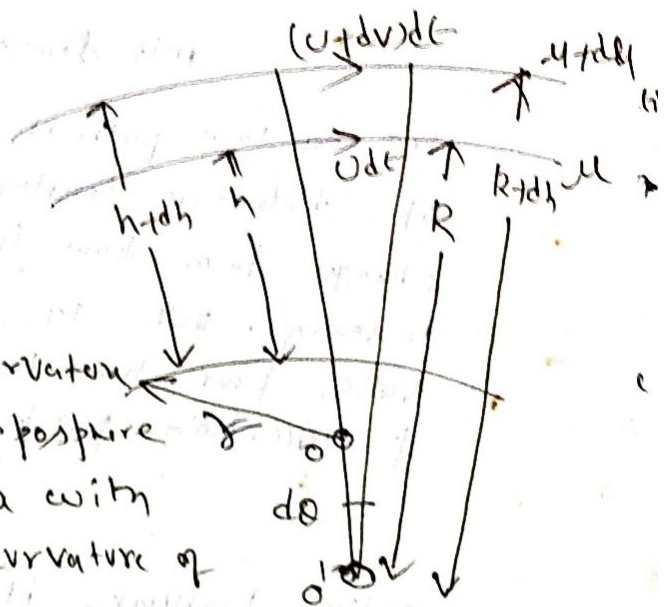 (U+dv)dt
μ+dμ
Udt
μ
h+dh
h
R
R+dh
rvature
posphire
r
O
a with
dθ
urvature of
O'